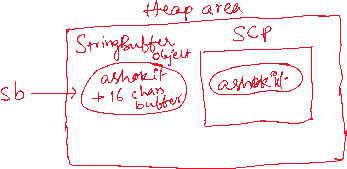 Heap area
StringBuffer
object
SCP
ashokit
+ 16 chars
buffer
ashokit
sb